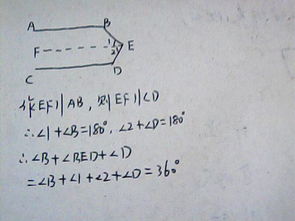 A B
1
F E
2
C D
作EF∥AB，则EF∥CD
∴∠1+∠B=180°，∠2+∠D=180°
∴∠B+∠BED+∠D
=∠B+∠1+∠2+∠D=360°